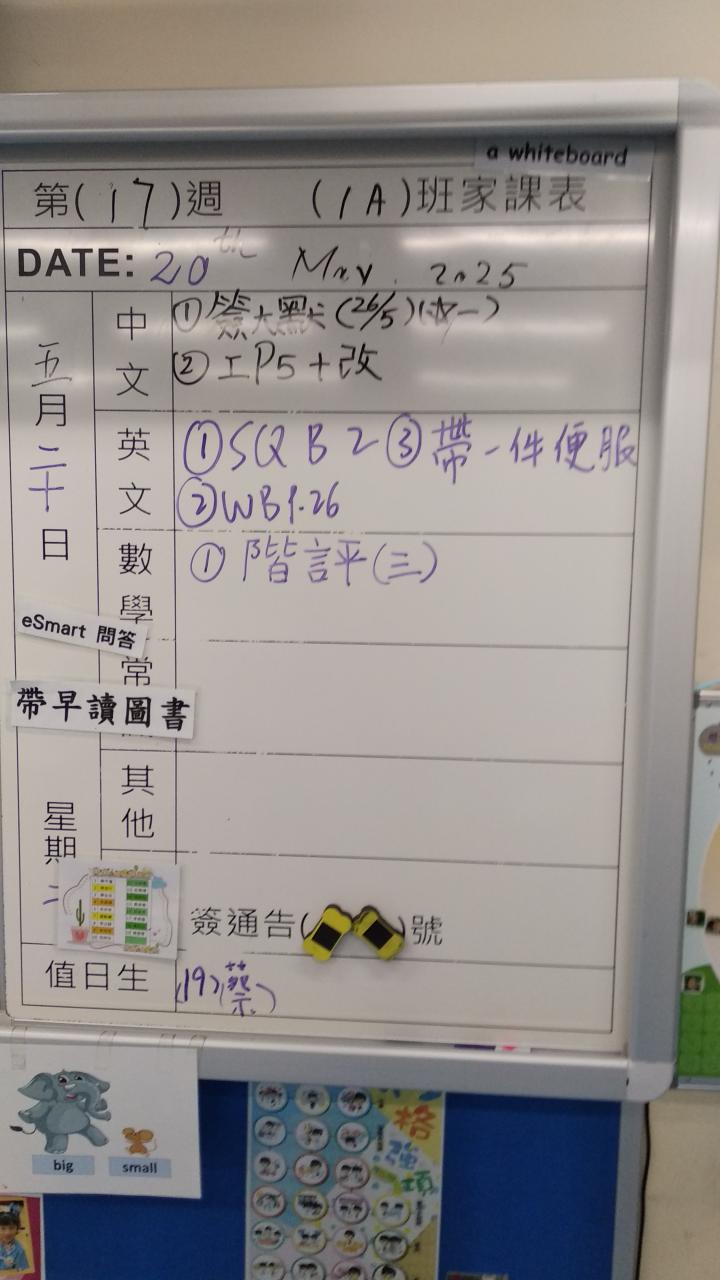 a whiteboard
第(17)週 (1A)班家課表
DATE: 20th May. 2025
五月二十日
中文
①簽大默(26/5)(☆一)
②工P5+改
英文
①SQB2 ③帶一件便服
②WB1.26
數學
①階評(三)
eSmart 問答
常
帶早讀圖書
其他
星期二
簽通告( )號
值日生
(19)(蔡)
big small
格強項